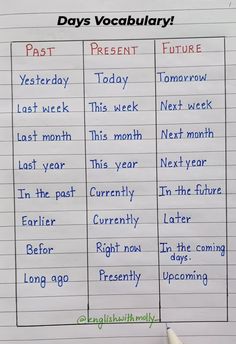 Days Vocabulary!
PAST PRESENT FUTURE
Yesterday Today Tomorrow
Last week This week Next week
Last month This month Next month
Last year This year Next year
In the past Currently In the future
Earlier Currently Later
Befor Right now In the coming
days.
Long ago Presently Upcoming
@englishwithmolly_